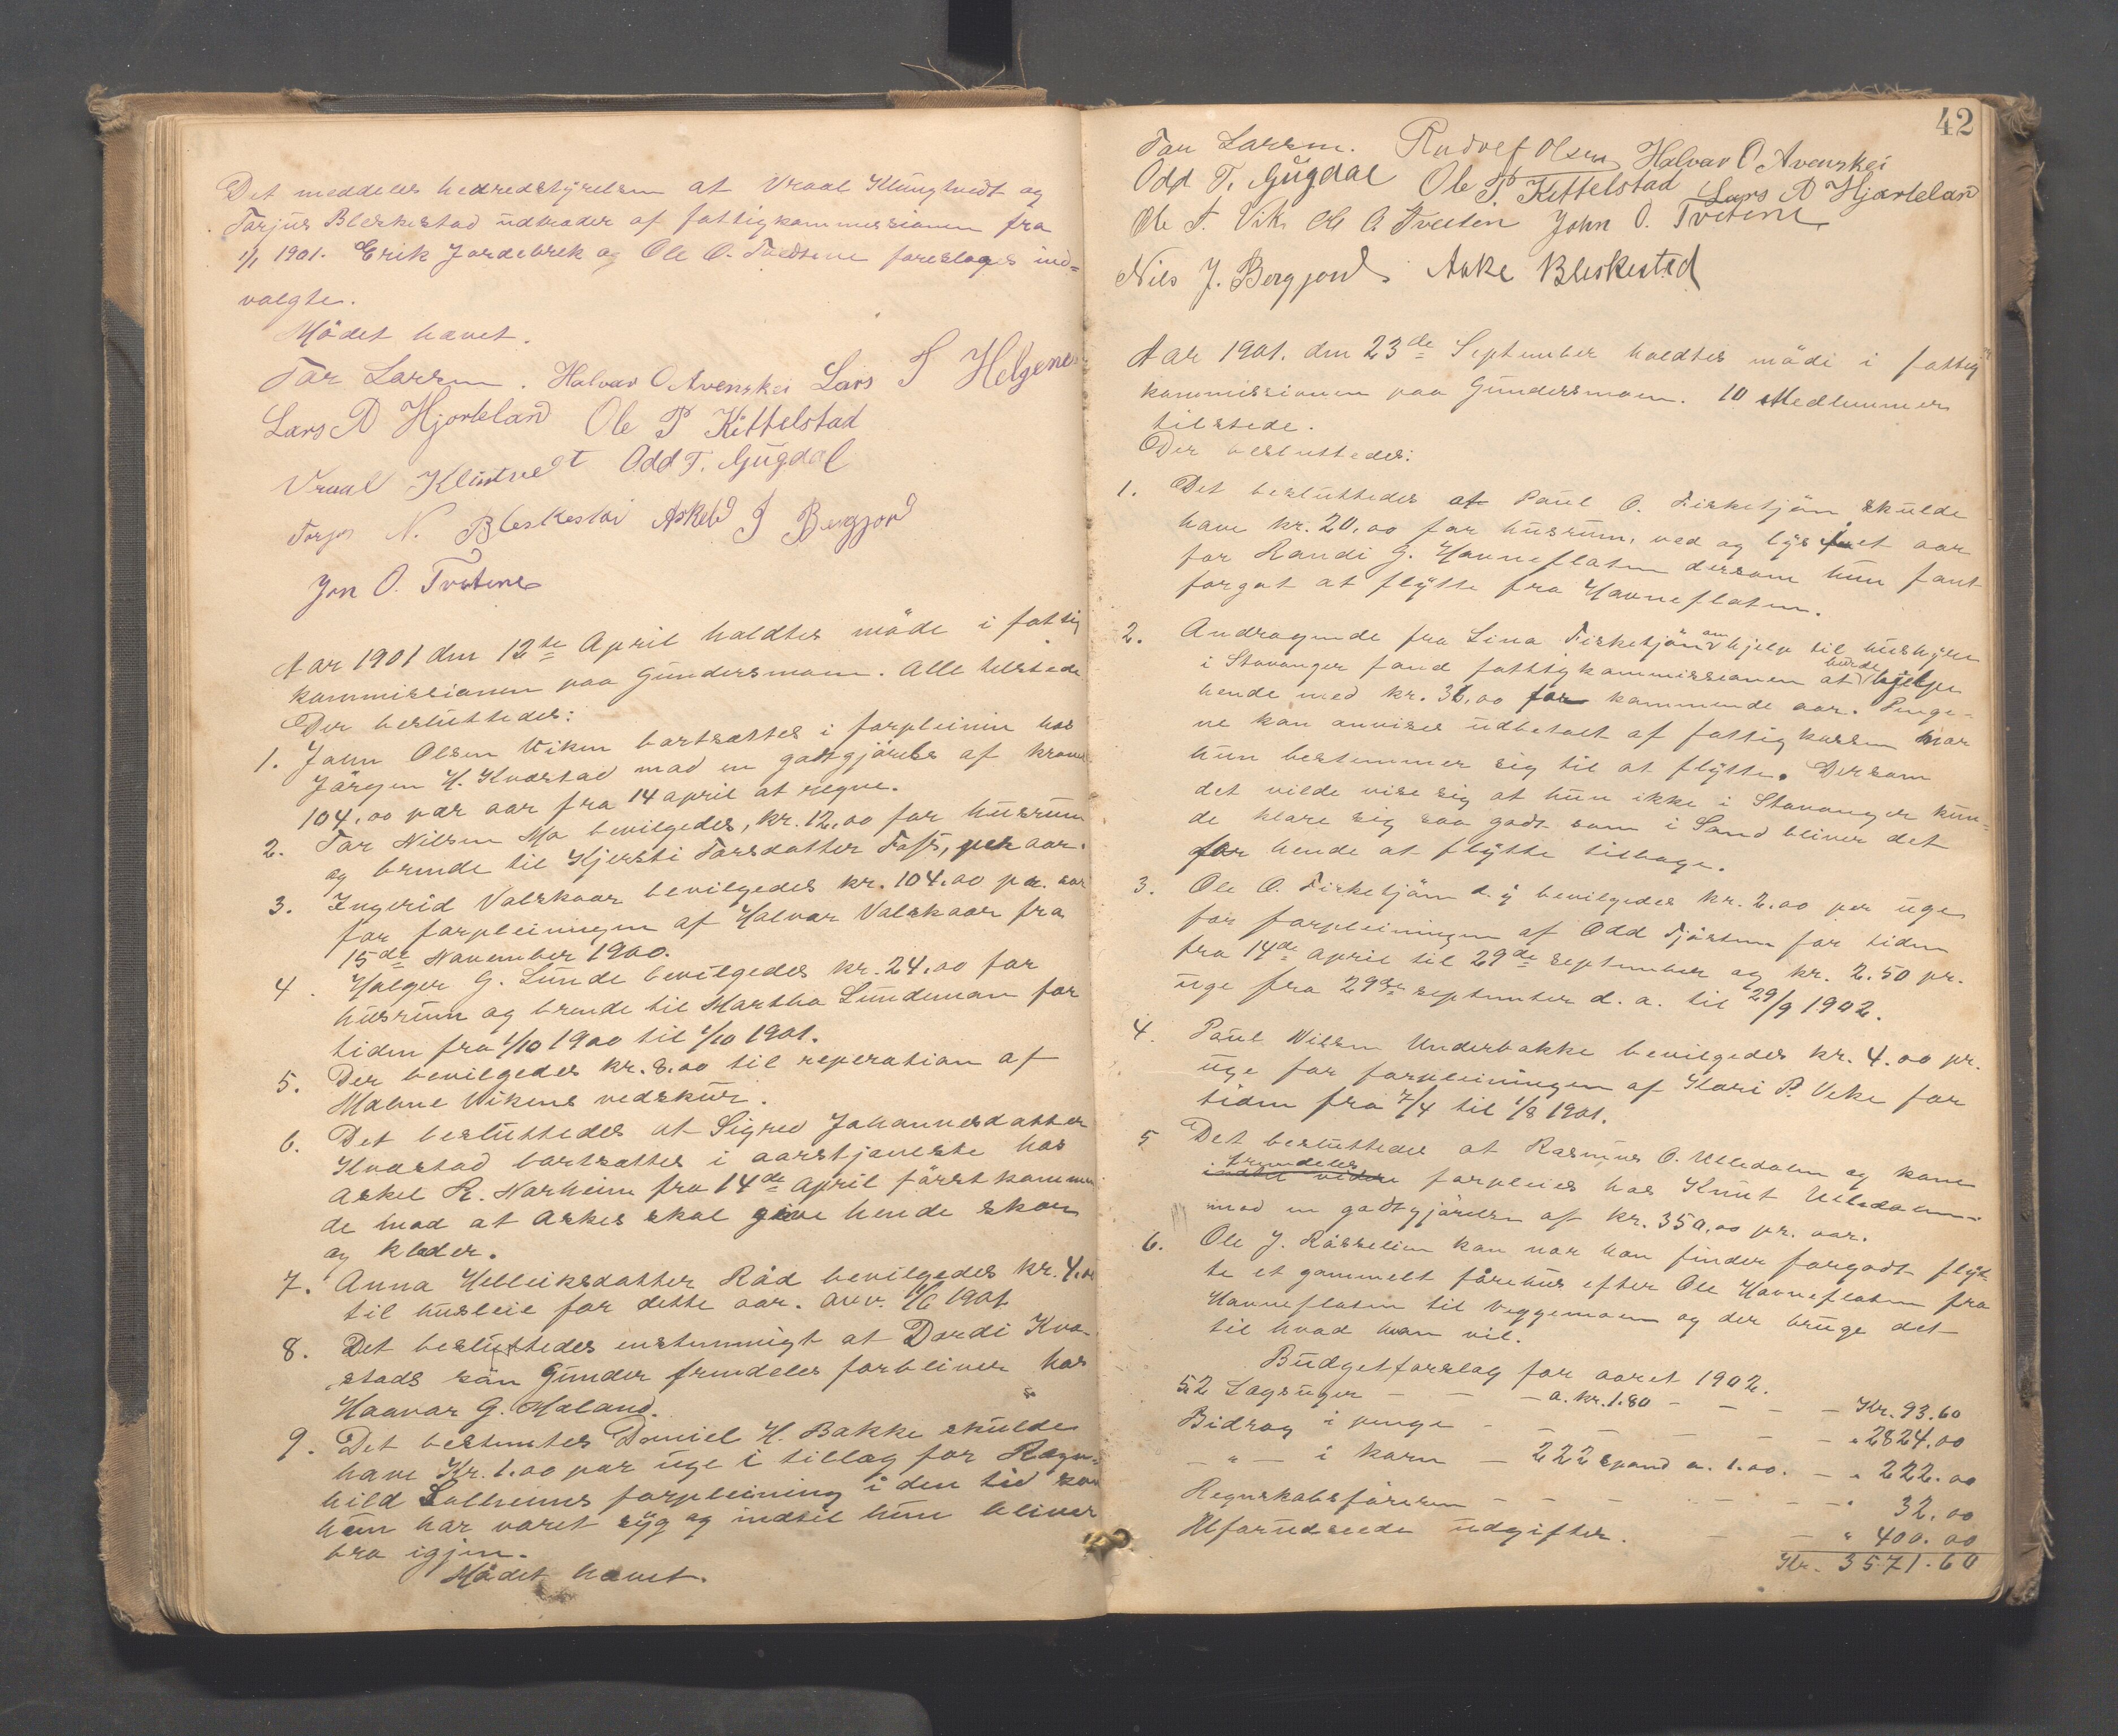 Det meddeles hedredstyrelsen at Vraal Klungtvedt og
Torjus Bleskestad udtræder af fattigkommissionen fra
1/1 1901. Erik Jordebrek og Ole O. Tvedtene foreslages ind-
valgte.
Mödet hævet.
Tor Larsen. Halvar O Avenskei Lars T Helgenes
Lars A Hjorteland Ole P Kittelstad
Vraal Klungtvedt Odd T. Gugdal
Torjus N. Bleskestad Askeld J Bergjord
Jon O. Tvetene
Aar 1901 den 12te April holdtes möde i fattig
kommissionen paa Gundersmoen. Alle tilstede
Der besluttedes:
1. John Olsen Viken bortsættes i forpleinin hos
Jörgen H. Kvæstad mod en godtgjörelse af kroner
104,00 pær aar fra 14 april at regne.
2. Tor Nilsen Mo bevilgedes, kr. 12,00 for husrum
og brende til Kjersti Torsdatter Foss, per aar.
3. Ingerid Valskaar bevilgedes kr. 104.00 pr. aar
for forpleiningen af Halvor Valskaar fra
15de November 1900.
4. Holger G. Lunde bevilgedes kr. 24,00 for
husrum og brende til Martha Lundemoen for
tiden fra 1/10 1900 til 1/10 1901.
5. Der bevilgedes kr. 8.00 til reperation af
Malene Vikens vedskur.
6. Det besluttedes at Sigred Johannesdatter
Kvæstad bortsættes i aarstjeneste hos
Askel R. Norheim fra 14de April förstkommen
de mod at Askel skal give hende skon
og klæder.
7. Anna Helleiksdatter Råd bevilgedes kr. 4.00
til husleie for dette aar. anv. 1/6 1901
8. Det besluttedes enstemmigt at Dordi Kvæ-
stads sön Gunder fremdeles forbliver hos
Haavar G. Moland.
9. Det bestemtes Daniel H. Bakke skulde
have Kr. 1.00 pær uge i tillæg for Ragn-
hild Solheims forpleining i den tid som
hun har været syg og indtil hun bliver
bra igjen.
Mödet hævet.
42
Tor Larsen. Rudolf Olsen Halvar O Avenskei
Odd T. Gugdal Ole P. Kittelstad Lars A Hjorteland
Ole T. Vik Ole O Tveeten John O. Tvetene
Nils J. Bergjord Aske Bleskestad
Aar 1901. den 23de September holdtes möde i fattig
kommissionen paa Gundersmoen. 10 Medlemmer
tilstede.
Der besluttedes:
1. Det besluttedes at Paul O. Fisketjön skulde
have kr. 20,00 for husrum, ved og lys i et aar
for Randi G. Havneflaten dersom hun fant
forgot at flytte fra Havneflaten.
2. Andragende fra Lina Fisketjön om hjelp til hushyre
i Stavanger fand fattigkommissionen at burde hjelpe
hende med kr. 36,00 for kommende aar. Penge-
ne kan anvises udbetalt af fattigkassen naar
hun bestemmer sig til at flytte. Dersom
det vilde vise sig at hun ikke i Stavanger kun-
de klare sig saa godt som i Sand bliver det
for hende at flytte tilbage.
3. Ole O. Fisketjön d.y bevilgedes kr. 2.00 per uge
for forpleiningen af Odd Fjörten for tiden
fra 14de april til 29de september og kr. 2.50 pr.
uge fra 29de september d. a. til 29/9 1902.
4. Paul Nilsen Underbakke bevilgedes kr. 4.00 pr.
uge for forpleiningen af Kari P. Veke for
tiden fra 7/4 til 1/8 1901.
5 Det besluttedes at Rasmus O. Ulledalen og kone
fremdeles
indtil videre forpleies hos Knut Ulledalen
mod en godtgjörelse af kr. 350,00 pr. aar.
6. Ole J. Råsselien kan nar han finder forgodt flyt-
te et gammelt fårehus efter Ole Havneflaten fra
Havneflaten til Veggemoen og der bruge det
til hvad han vil.
Budgetforslag for aaret 1902.
52 Lagsuger – – – a. kr. 1.80 – – – – Kr. 93.60
Bidrag i penge – – – – – – „ 2824.00
– " – i korn – 222 spand a. 1.00. – „ 222.00
Regnskabsföreren – – – – – – " 32.00
Uforudseede udgifter. – – " 400.00
Kr. 3571.60